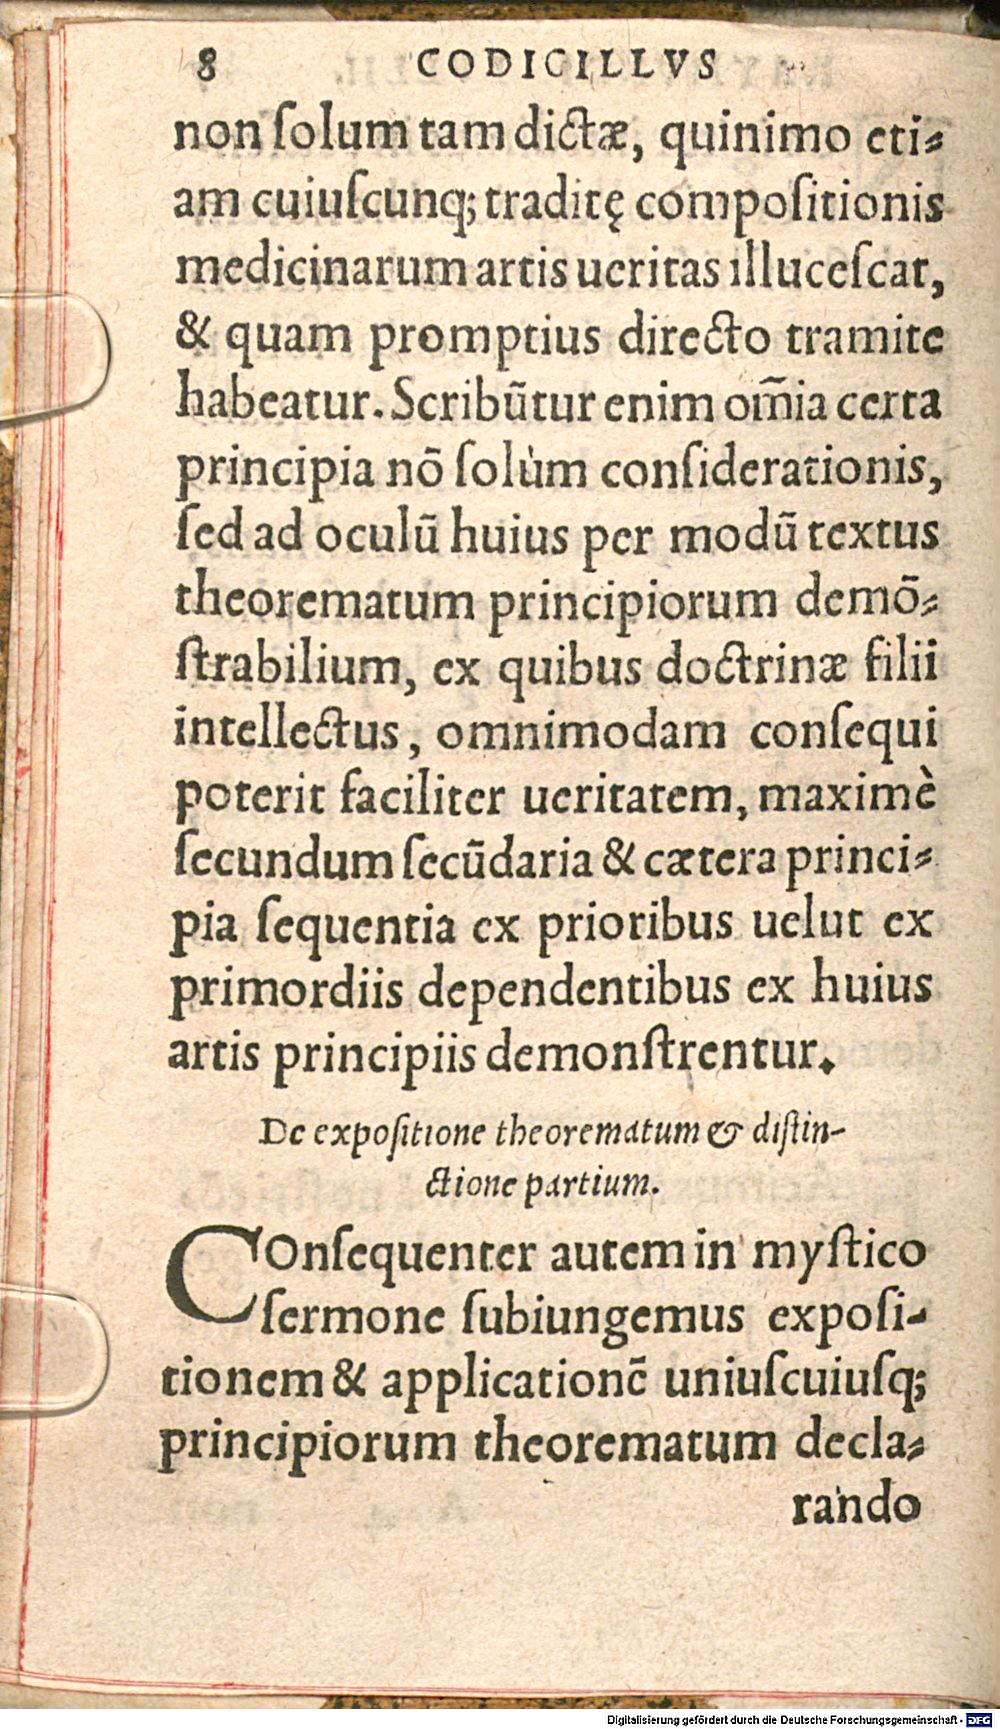 8 CODICILLVS
non ſolum tam dictæ, quinimo eti⸗
am cuiuſcunq; traditę compoſitionis
medicinarum artis ueritas illuceſcat,
& quam promptius directo tramite
habeatur. Scribũtur enim om̃ia certa
principia nõ ſolùm conſiderationis,
ſed ad oculũ huius per modũ textus
theorematum principiorum demõ⸗
ſtrabilium, ex quibus doctrinæ filii
intellectus, omnimodam conſequi
poterit faciliter ueritatem, maximè
ſecundum ſecũdaria & cætera princi⸗
pia ſequentia ex prioribus uelut ex
primordiis dependentibus ex huius
artis principiis demonſtrentur.
De expoſitione theorematum & diſtin-
ctione partium.
COnſequenter autem in myſtico
ſermone ſubiungemus expoſi-
tionem & applicationẽ uniuſcuiuſq;
principiorum theorematum decla⸗
rando
Digitalisierung gefördert durch die Deutsche Forschungsgemeinschaft - DFG